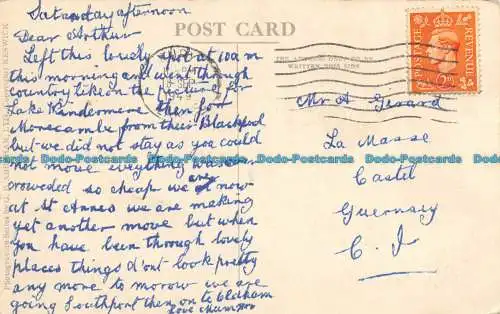 Saturday afternoon
Dear Arthur
Left this lovely spot at 10 a m
this morning and went through
country like on the picture for
Lake Windermere then for
Morecambe from their Blackpool
but we did not stay as you could
not move eveything was so
croweded so cheap we are now
at St Annes we are making
yet another move but when
you have been through lovely
places things d'ont look pretty
any more to morow we are
going Southport then on to Oldham
Love Mum
POST CARD
THE ADDRESS ONLY TO BE
WRITTEN THIS SIDE
POSTAGE
REVENUE
Mr A Girard
La Masse
Castel
Guernsey
C. I
KESWICK
Dodo-Postcards Dodo-Postcards Dodo-Postcards Dodo-Postcards